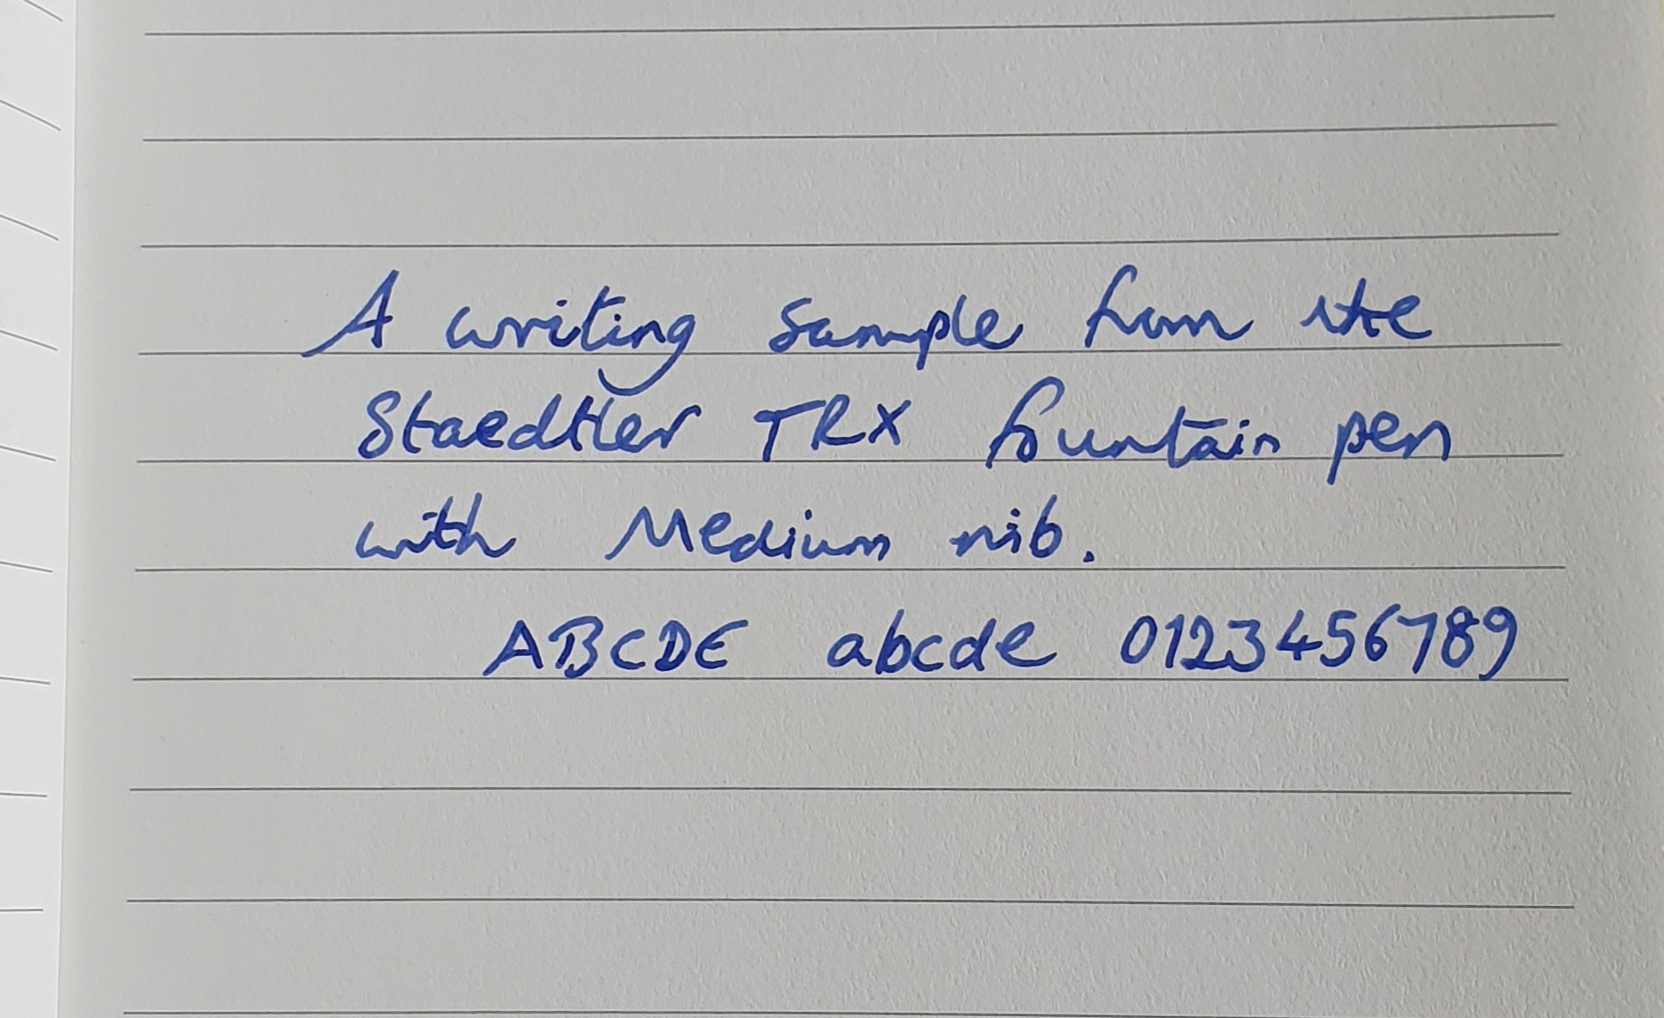 A writing sample from the
Staedtler TRX fountain pen
with Medium nib.
ABCDE abcde 0123456789